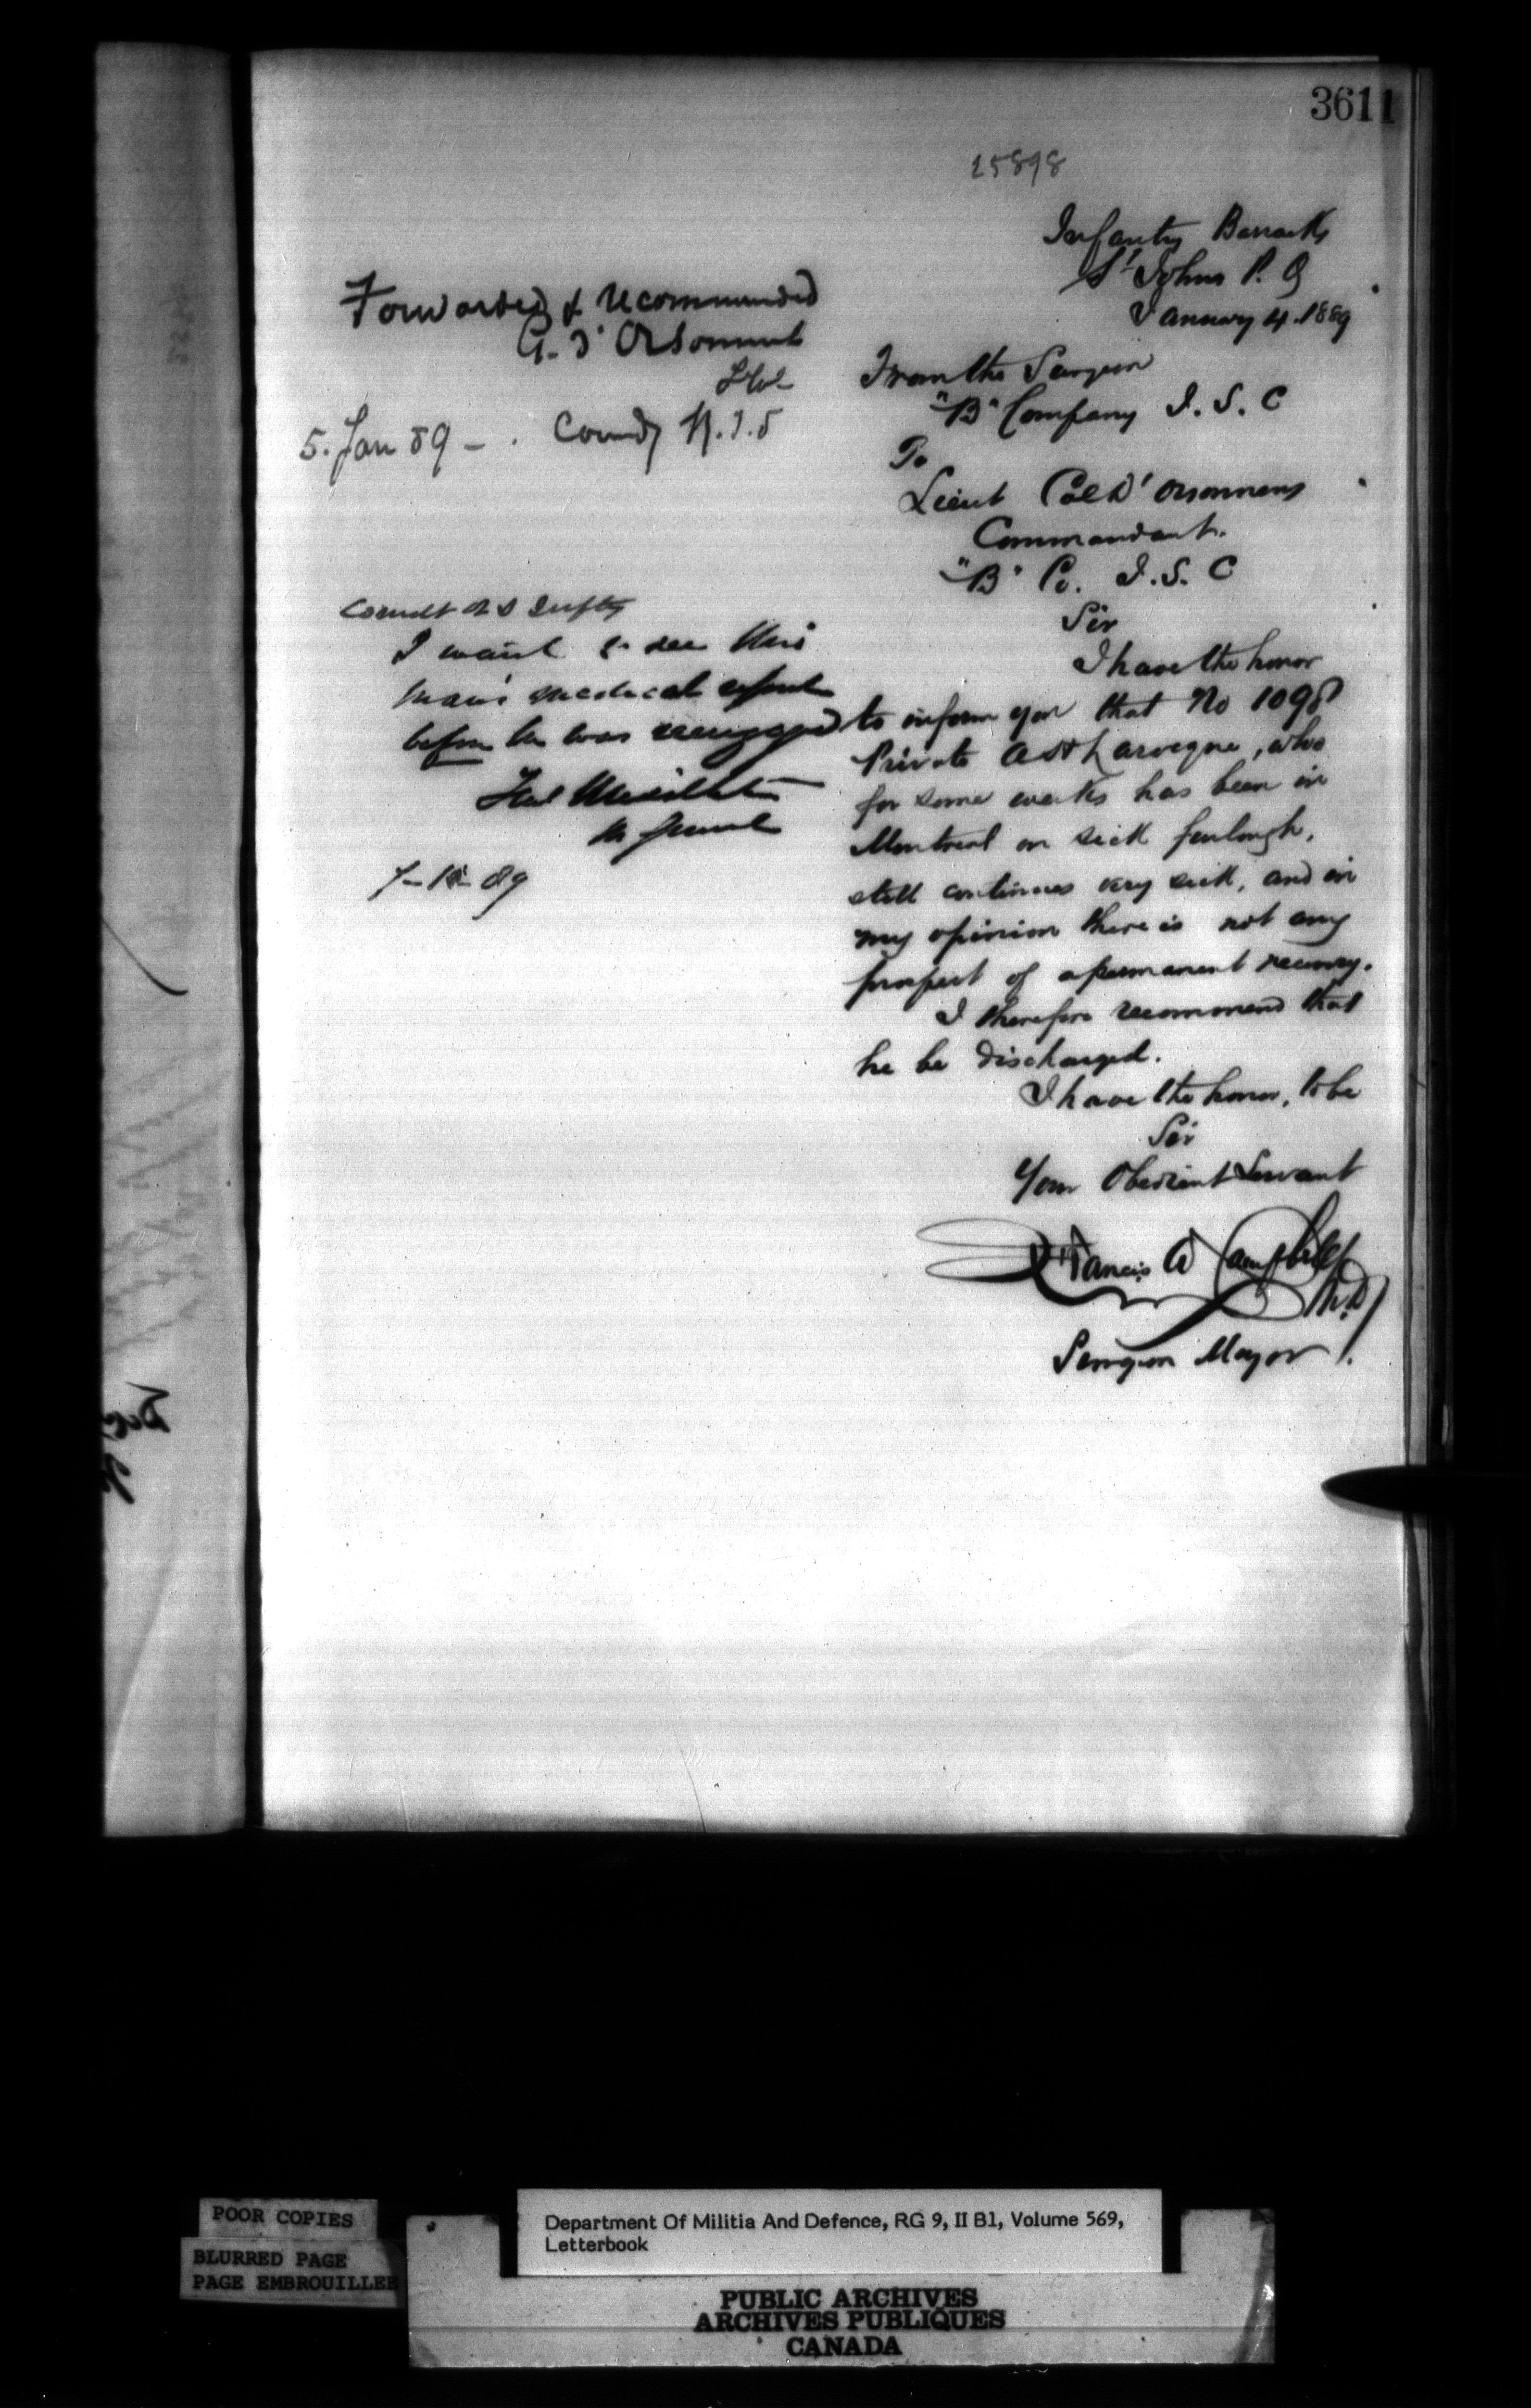 3611
25898
Infantry Barracks
St Johns P. Q
January 4. 1889
From the Surgeon
"B" Company I. S. C
To
Lieut Col D'Orsonnens
Commandant.
"B" Co. I. S. C
Sir
I have the honor
to inform you that No 1098
Private , who
for some weeks has been in
Montreal on sick furlough,
still continues very sick, and in
my opinion there is not any
prospect of a permanent recovery.
I therefore recommend that
he be discharged.
I have the honor, to be
Sir
Your Obedient Servant
Francis W Campbell
M.D
Surgeon Major
Forwarded & recommended
G. d'Orsonnens
Lt Col
5. Jan 89 - . Comdg
I want to see this
man's medical report
before he was reengaged
Fred Middleton
M General
7-1-89
POOR COPIES
BLURRED PAGE
PAGE EMBROUILLEE
Department Of Militia And Defence, RG 9, II B1, Volume 569,
Letterbook
PUBLIC ARCHIVES
ARCHIVES PUBLIQUES
CANADA